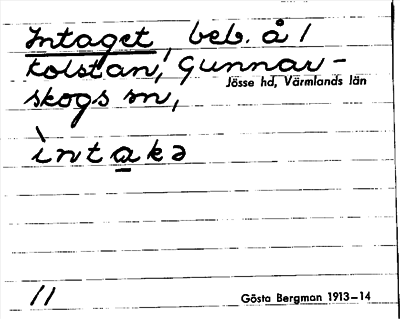 Intaget, beb. å 1
Kolstan, Gunnar-
skogs sn,
Jösse hd, Värmlands län
ìntakə
11
Gösta Bergman 1913–14